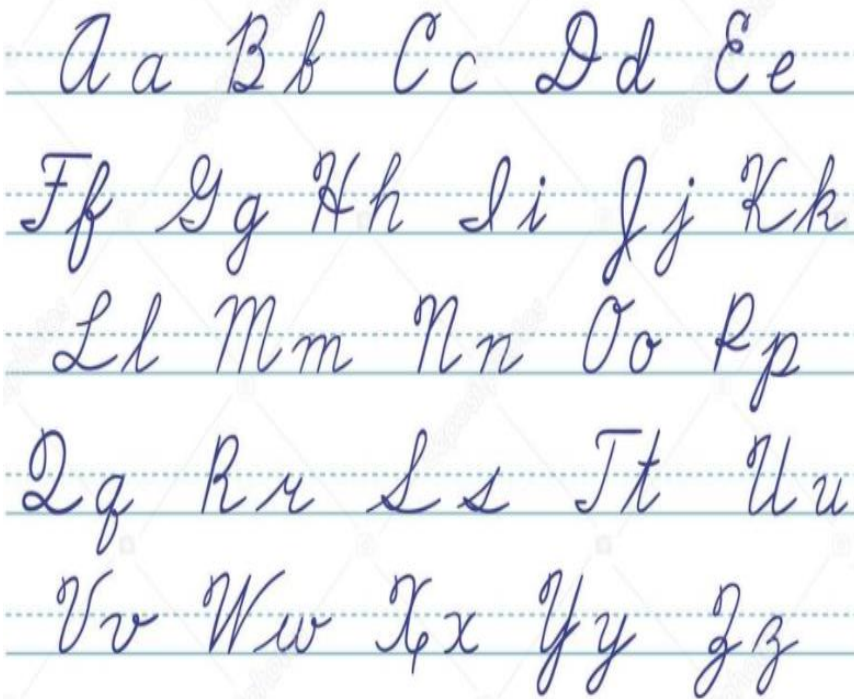 A a B b C c D d E e
F f G g H h I i J j K k
L l M m N n O o P p
Q q R r S s T t U u
V v W w X x Y y Z z